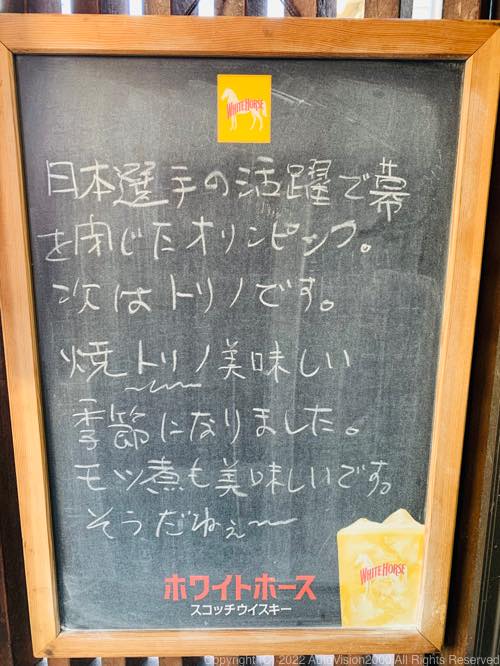 WHITE HORSE
日本選手の活躍で幕
を閉じたオリンピック。
次はトリノです。
焼トリノ美味しい
季節になりました。
モツ煮も美味しいです。
そうだねぇ〜
WHITE HORSE
ホワイトホース
スコッチウイスキー
Copyright (C) 2022 AutoVision2000 All Rights Reserved